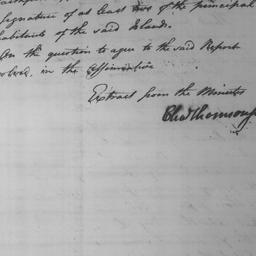 Signature of at least two of the principal
habitants of the said Islands.
On the question to agree to the said Report
solved, in the affirmative
Extract from the Minutes
Cha Thomson